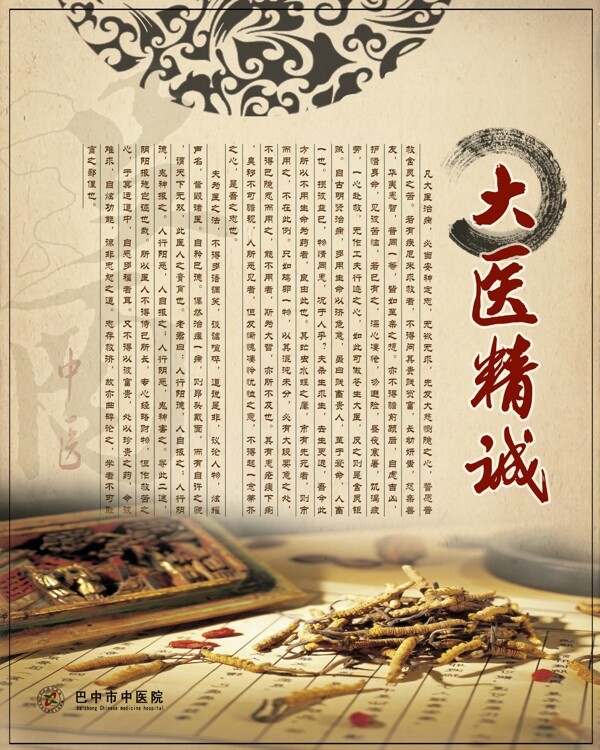 大医精诚
凡大医治病，必当安神定志，无欲无求，先发大慈恻隐之心，誓愿普
救含灵之苦。若有疾厄来求救者，不得问其贵贱贫富，长幼妍蚩，怨亲善
友，华夷愚智，普同一等，皆如至亲之想。亦不得瞻前顾后，自虑吉凶，
护惜身命，见彼苦恼，若己有之，深心凄怆，勿避险，昼夜寒暑，饥渴疲
劳，一心赴救，无作工夫行迹之心，如此可做苍生大医，反之则是含灵钜
贼。自古明贤治病，多用生命以济危急，虽曰贱畜贵人，至于爱命，人畜
一也。损彼益己，物情同患，况于人乎？夫杀生求生，去生更远，吾今此
方所以不用生命为药者，良由此也。其虻虫水蛭之属，市有先死者，则市
而用之，不在此例。只如鸡卵一物，以其混沌未分，必有大段要急之处，
不得已隐忍而用之，能不用者，斯为大哲，亦所不及也。其有患疮痍下痢
，臭秽不可瞻视，人所恶见者，但发惭愧凄怜忧恤之意，不得起一念蒂芥
之心，是吾之志也。
夫为医之法，不得多语调笑，谈谑喧哗，道说是非，议论人物，炫耀
声名，訾毁诸医，自矜己德，偶然治瘥一病，则昂头戴面，而有自许之貌
，谓天下无双，此医人之膏肓也。老君曰：人行阳德，人自报之；人行阴
德，鬼神报之。人行阳恶，人自报之；人行阴恶，鬼神害之。寻此二途，
阴阳报施岂诬也哉。所以医人不得恃己所长，专心经略财物，但作救苦之
心，于冥运道中，自感多福者耳。又不得以彼富贵，处以珍贵之药，令彼
难求，自炫功能，谅非忠恕之道。志存救济，故亦曲碎论之，学者不可耻
言之鄙俚也。
中医
巴中市中医院
ba zhong Chinese medicine hospital